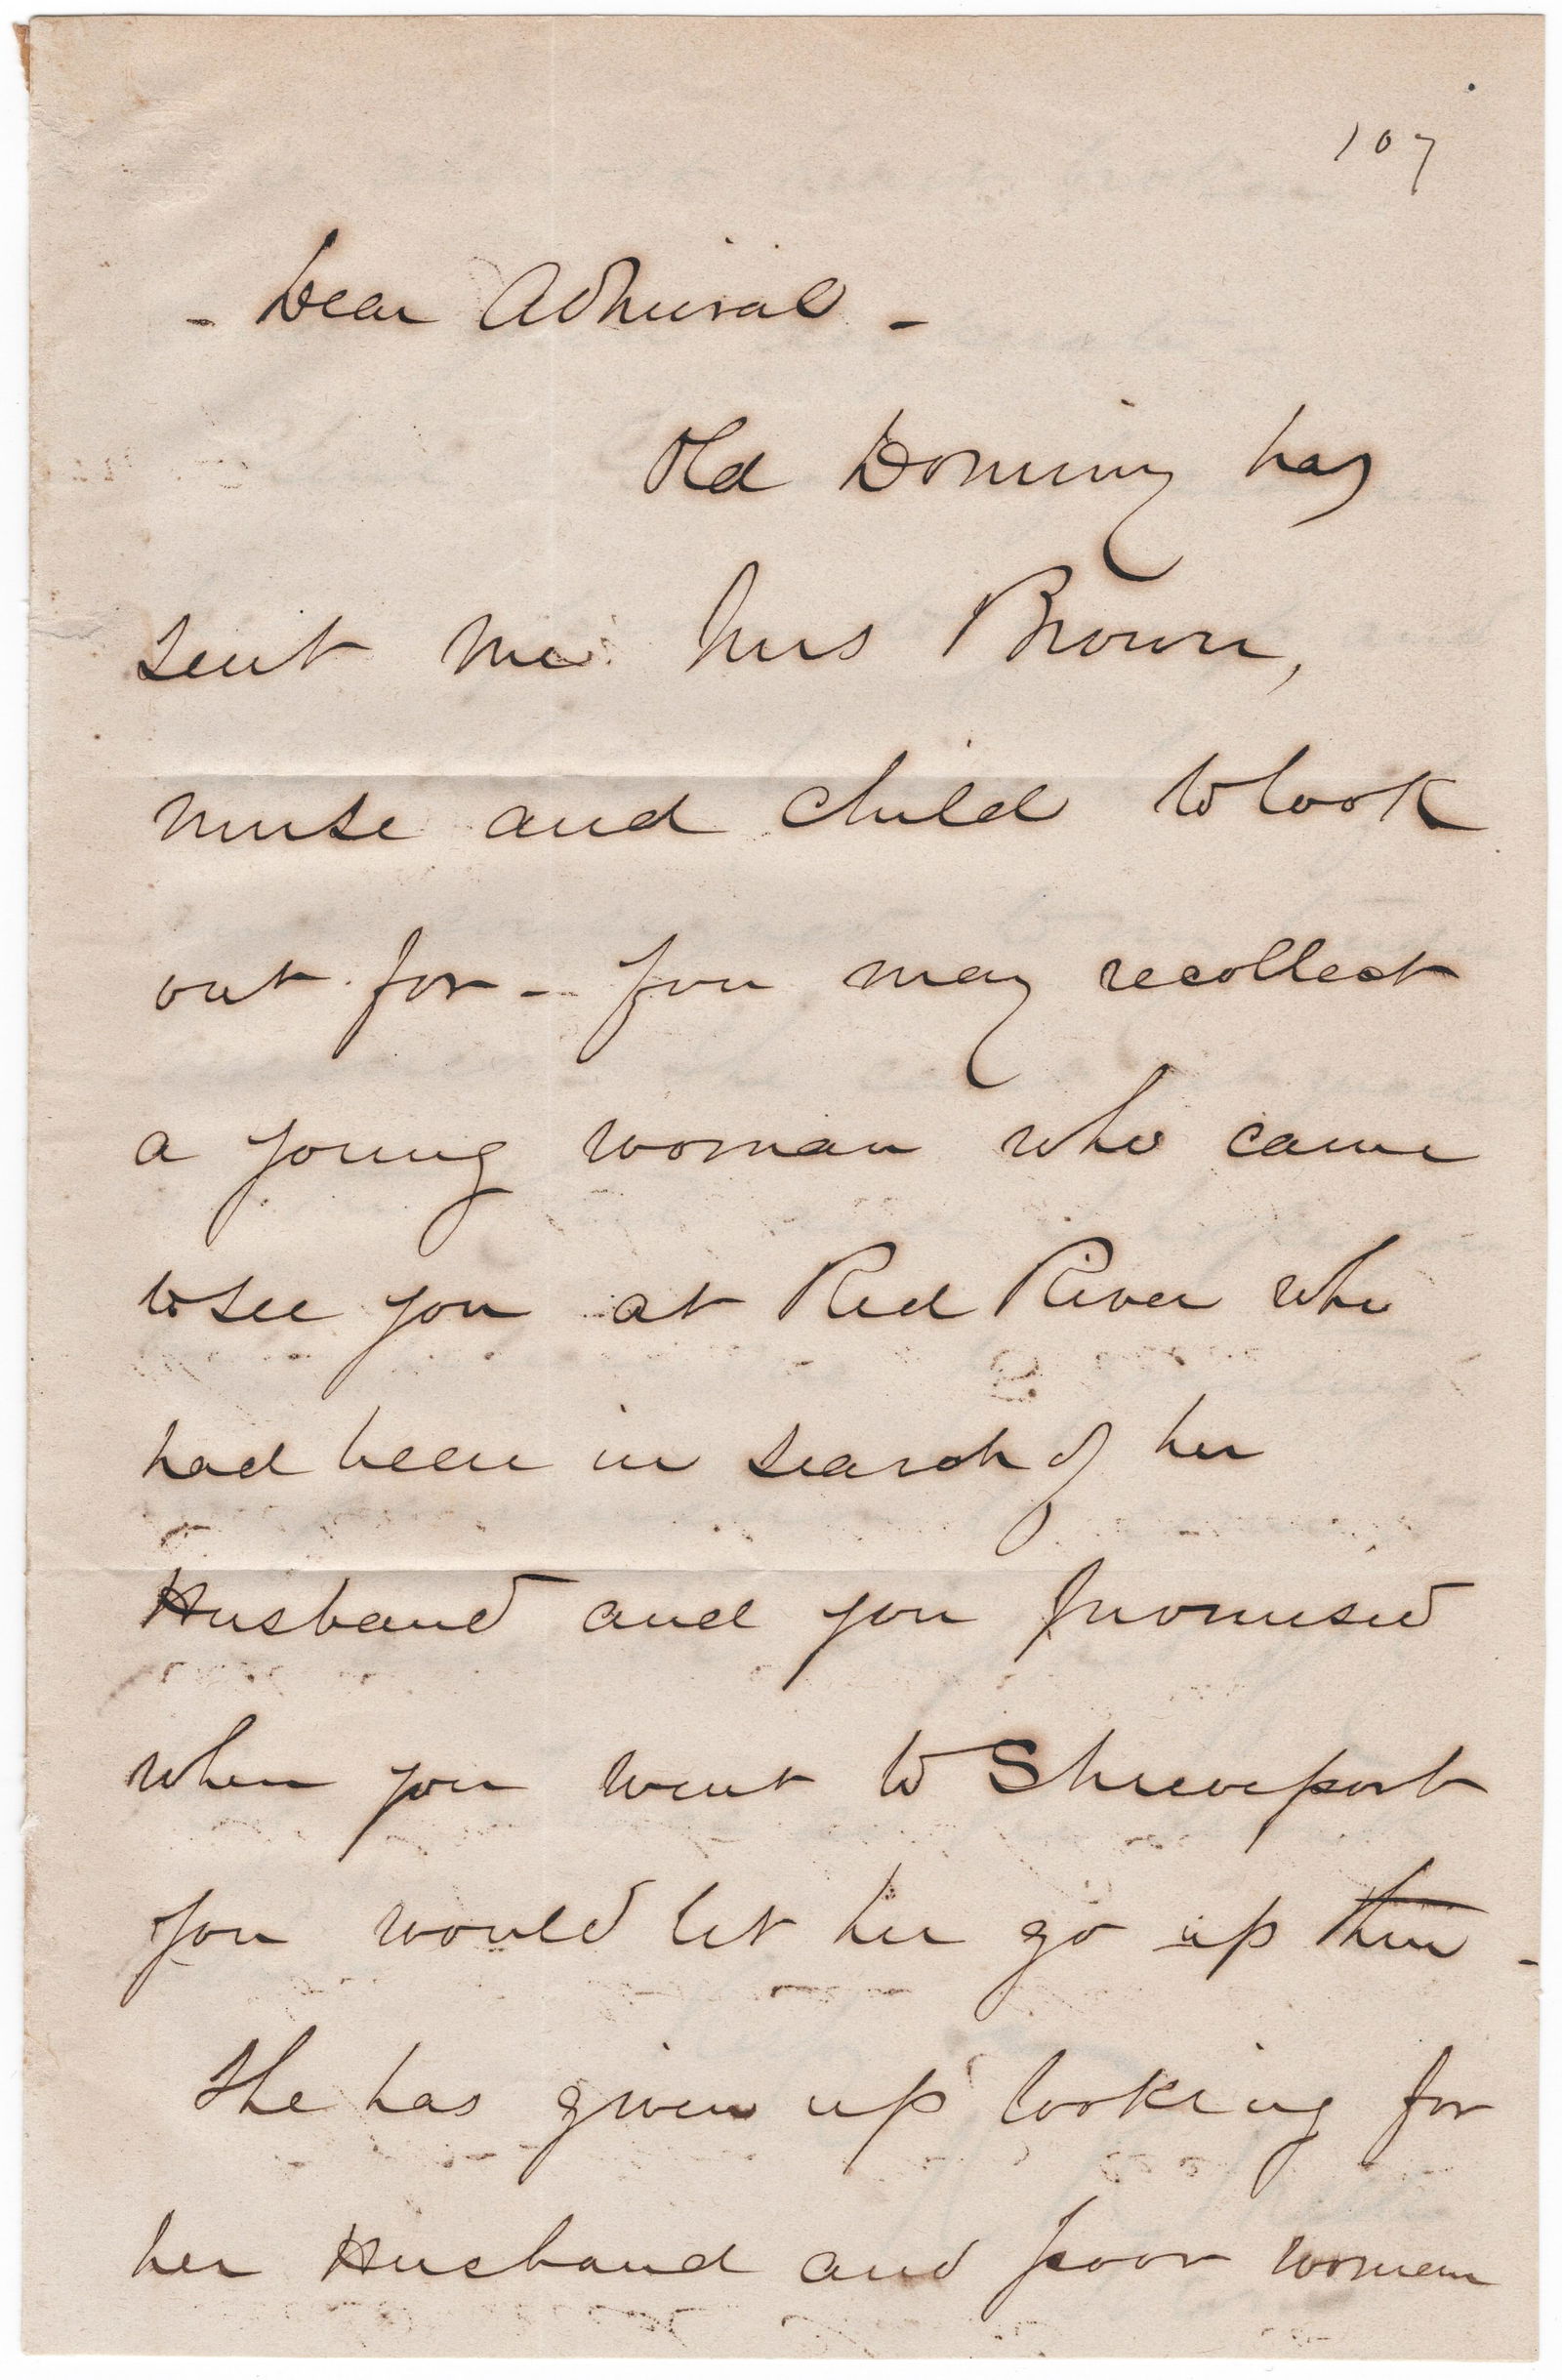 107
- Dear Admiral -
Old Dominy has
sent me Mrs Brown,
nurse and child to look
out for - you may recollect
a young woman who came
to see you at Red River who
had been in search of her
Husband and you promised
when you went to Shreveport
you would let her go up then -
She has given up looking for
her Husband and poor woman